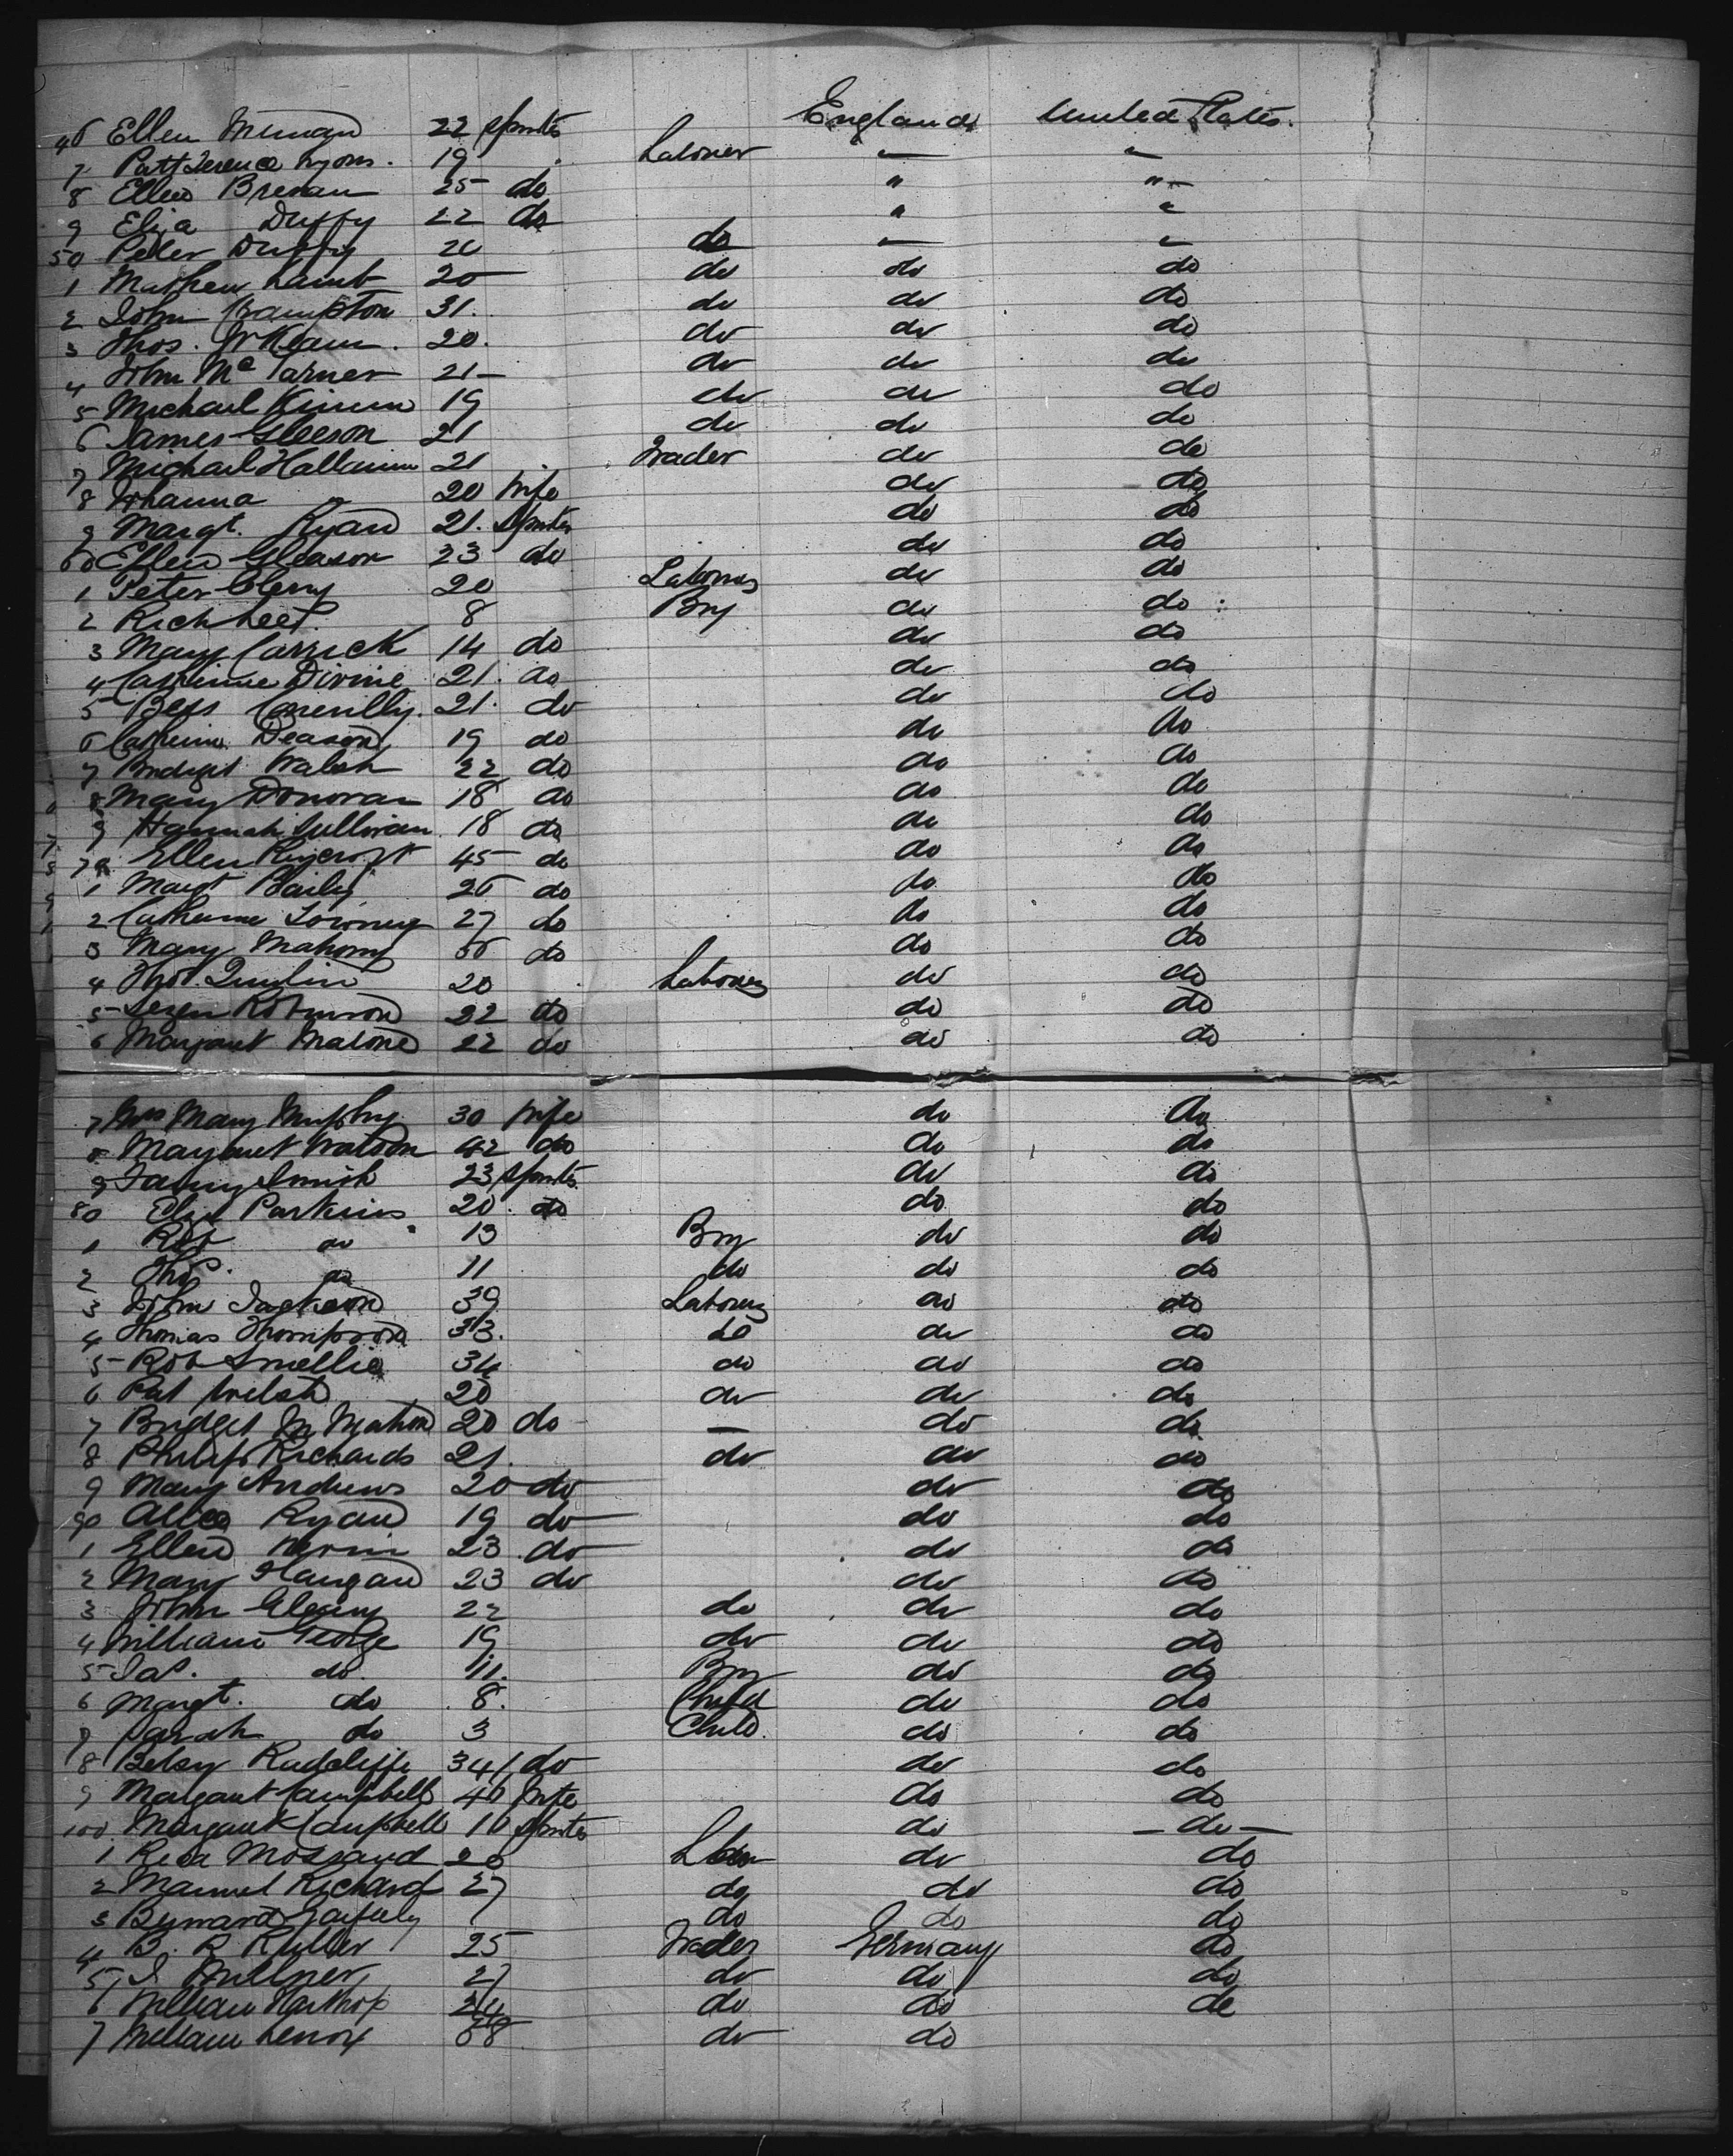 46 Ellen 22 Spinster England United States.
7 Patt Terence Lyons. 19 Laborer " "
8 Ellen Brenan 25 do " "
9 Eliza Duffy 22 do " "
50 Peter Duffy do " "
1 Mathew Lamb 20 do do do
2 John Crampton 31. do do do
3 Thos. 20. do do do
4 John Mc 21 do do do
5 Michael 19 do do do
6 James Gleeson 21 do do do
7 Michael 21 Trader do do
8 Johanna " 20 Wife do do
9 Margt. Ryan 21. Spinster do do
60 Ellen Gleason 23 do do do
1 Peter Clery 20 Laborer do do
2 Rich 8 Boy do do
3 Mary Carrick 14 do do do
4 Catherine Divine 21. do do do
5 Bess 21. do do do
6 Catherine Deason 19 do do do
7 Bridget Walsh 22 do do do
8 Mary Donovan 18 do do do
9 Hannah Sullivan 18 do do do
70 Ellen Rycroft 45 do do do
1 Margt Baily 26 do do do
2 Catherine 27 do do do
3 Mary Mahony do do do
4 Thos. Quinlin 20 Laborer do do
5 Robinson 22 do do do
6 Margaret Malone 22 do do do
7 Mrs Mary Murphy 30 Wife do do
8 Margaret Watson 42 do do do
9 Fanny Smith 23 Spinster do do
80 Eliz Parkins 20. do do do
1 Rob do 13 Boy do do
2 Thos. do 11 do do do
3 John Jackson 39 Laborer do do
4 Thomas Thompson 33. do do do
5 Rob Smellie 34 do do do
6 Pat Welsh 20 do do do
7 Bridget Mc Mahon 20 do — do do
8 Philip Richards 21. do do do
9 Mary Andrews 20 do do do
90 Alice Ryan 19 do do do
1 Ellen 23 do do do
2 Mary 23 do do do
3 John Gleany 22 do do do
4 William George 19 do do do
5 Jas. do 11. Boy do do
6 Margt. do 8. Child do do
7 Sarah do 3 Child. do do
8 Betsy Radcliffe 34 do do do
9 Margaret Campbell 40 Wife do do
100 Margaret Campbell 10 Spinster do — do —
1 20 do do
2 Richard 27 do do do
3 Bernard do do do
4 B. R. 25 Trader Germany do
5 J. 27 do do do
6 William 24 do do do
7 William do do